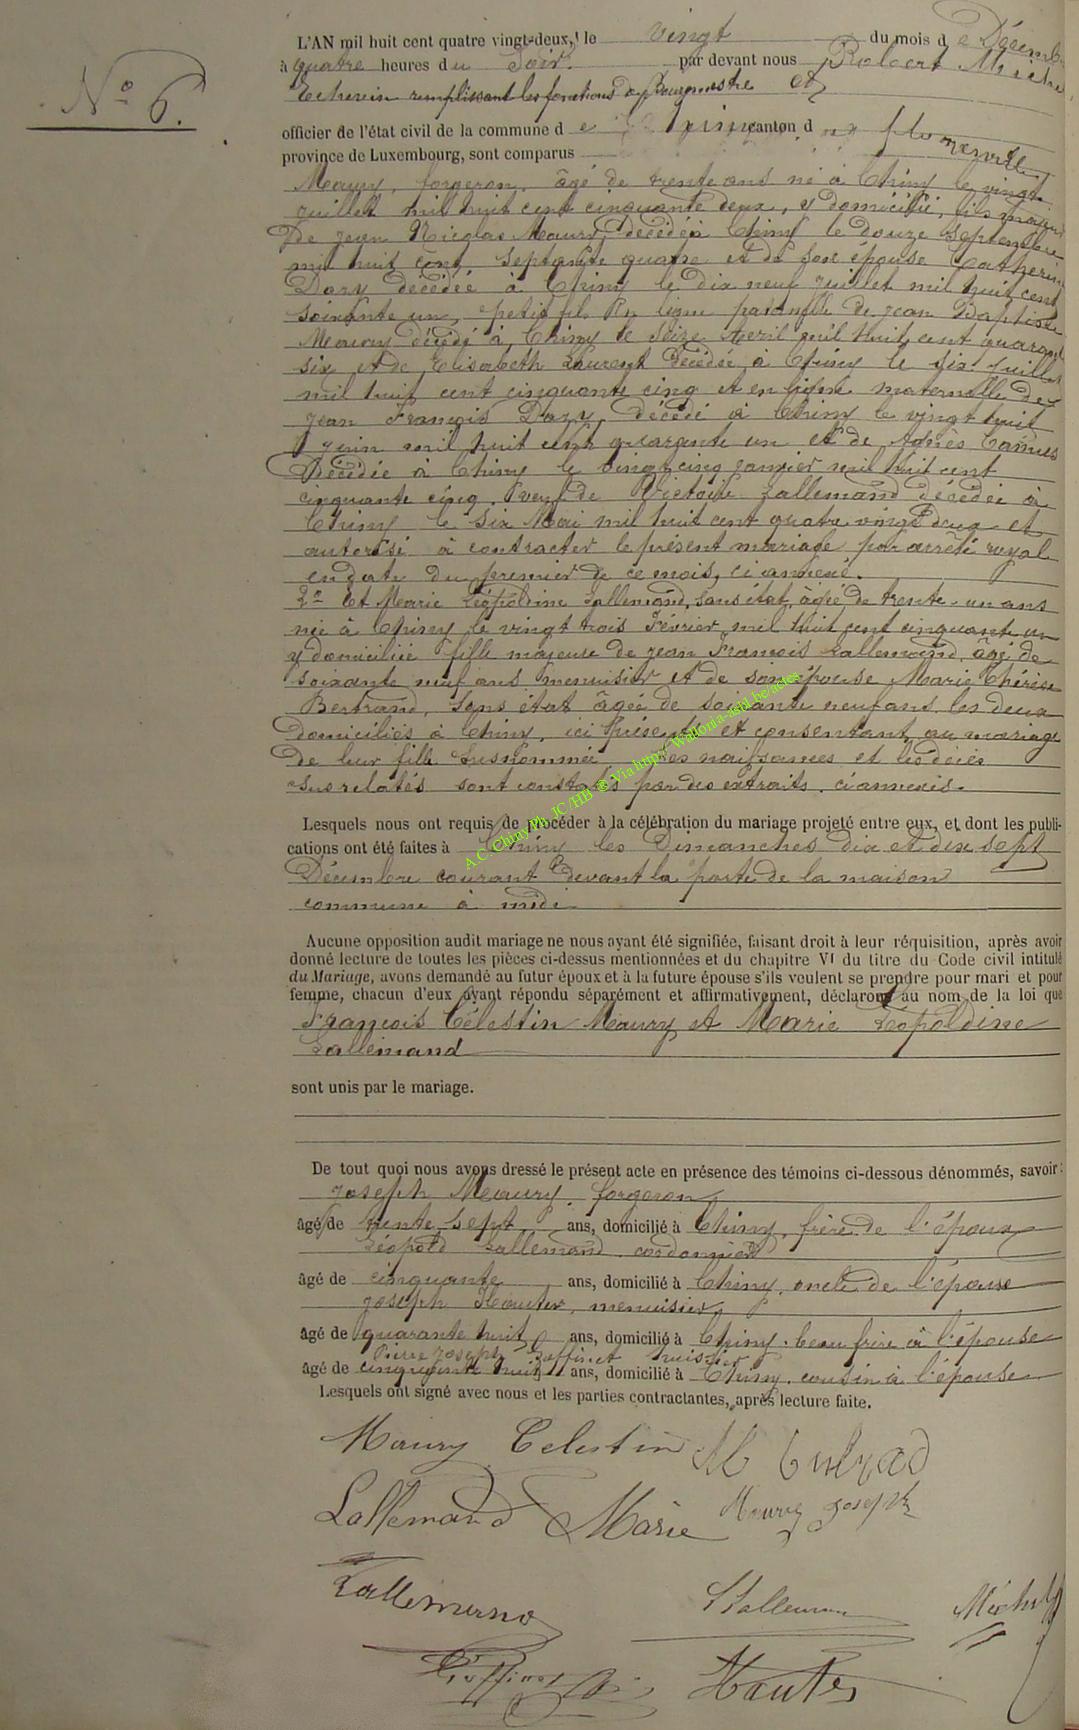 N° 6.
L'AN mil huit cent quatre vingt-deux, le vingt du mois de Décembre
à quatre heures du Soir par devant nous Robert Michel
Echevin remplissant les fonctions de Bourgmestre et
officier de l'état civil de la commune de Chiny canton de Florenville
province de Luxembourg, sont comparus
Maury, forgeron, âgé de trente ans né à Chiny le vingt
juillet mil huit cent cinquante deux, y domicilié, fils majeur
De Jean Nicolas Maury, décédé à Chiny le douze Septembre
mil huit cent septante quatre et de son épouse Catherine
Dary décédée à Chiny le dix neuf juillet mil huit cent
soixante un, petit fils en ligne paternelle de Jean Baptiste
Maury décédé à Chiny le seize avril mil huit cent quarante
six et de Elisabeth Laurent décédée à Chiny le six juillet
mil huit cent cinquante cinq et en ligne maternelle de
Jean François Dary, décédé à Chiny le vingt huit
juin mil huit cent quarante un et de Agnès Camus
Décédée à Chiny le vingt cinq janvier mil huit cent
cinquante cinq. Veuf de Victoire Lallemand décédée à
Chiny le six Mai mil huit cent quatre vingt deux et
autorisé à contracter le présent mariage par arrêté royal
en date du premier de ce mois, ci annexé.
2° Et Marie Léopoldine Lallemand, sans état, âgée de trente-un ans
née à Chiny le vingt trois Février mil huit cent cinquante un
y domiciliée fille majeure de Jean François Lallemand, âgé de
soixante neuf ans menuisier et de son épouse Marie Thérèse
Bertrand, sans état âgée de soixante neuf ans, les deux
domiciliés à Chiny, ici présents et consentant au mariage
de leur fille susnommée. Les naissances et les décès
susrelatés sont constatés par des extraits ci annexés.
Lesquels nous ont requis de procéder à la célébration du mariage projeté entre eux, et dont les publi-
cations ont été faites à Chiny les Dimanches dix et dix sept
Décembre courant devant la porte de la maison
commune à midi
Aucune opposition audit mariage ne nous ayant été signifiée, faisant droit à leur réquisition, après avoir
donné lecture de toutes les pièces ci-dessus mentionnées et du chapitre VI du titre du Code civil intitulé
du Mariage, avons demandé au futur époux et à la future épouse s'ils veulent se prendre pour mari et pour
femme, chacun d'eux ayant répondu séparément et affirmativement, déclarons au nom de la loi que
François Célestin Maury et Marie Léopoldine
Lallemand
sont unis par le mariage.
De tout quoi nous avons dressé le présent acte en présence des témoins ci-dessous dénommés, savoir:
Joseph Maury, forgeron
âgé de trente sept ans, domicilié à Chiny, frère de l'époux
Léopold Lallemand cordonnier
âgé de cinquante ans, domicilié à Chiny, oncle de l'épouse
Joseph Hautus, menuisier
âgé de quarante huit ans, domicilié à Chiny, beau frère à l'épouse
Pierre Joseph huissier
âgé de cinquante huit ans, domicilié à Chiny, cousin à l'épouse
Lesquels ont signé avec nous et les parties contractantes, après lecture faite.
Maury Celestin
Lallemand Marie Maury Joseph
Lallemand Michel
A.C. Chiny Ph. JC/HB ® Via http://Wallonia-asbl.be/actes